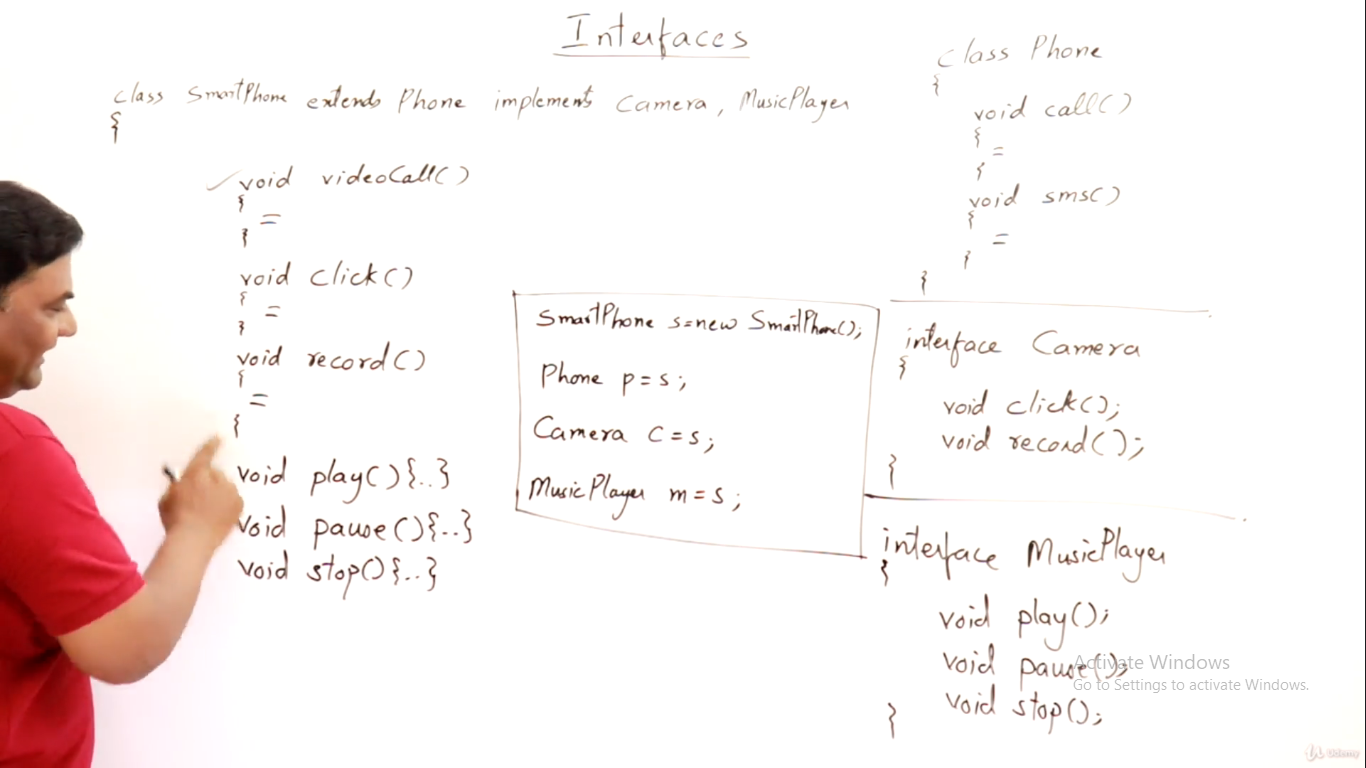 Interfaces
class SmartPhone extends Phone implements Camera, MusicPlayer
{
void videoCall()
{
=
}
void click()
{
=
}
void record()
{
=
}
void play(){..}
void pause(){..}
void stop(){..}
SmartPhone s=new SmartPhone();
Phone p=s;
Camera c=s;
MusicPlayer m=s;
class Phone
{
void call()
{
=
}
void sms()
{
=
}
}
interface Camera
{
void click();
void record();
}
interface MusicPlayer
{
void play();
void pause();
void stop();
}
Activate Windows
Go to Settings to activate Windows.
Udemy